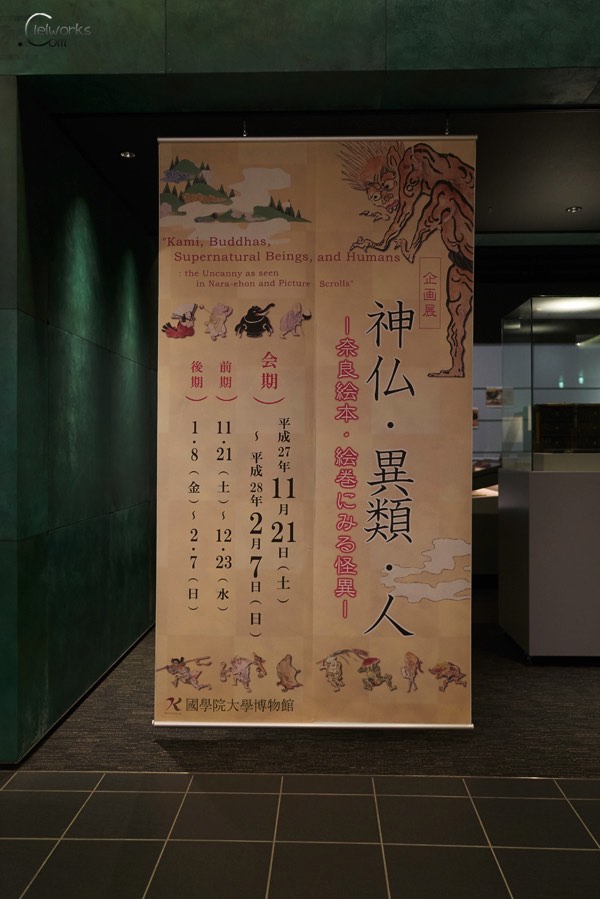 Cielworks
.Com
"Kami, Buddhas,
Supernatural Beings, and Humans"
: the Uncanny as seen
in Nara-ehon and Picture Scrolls"
企画展
神仏・異類・人
ー奈良絵本・絵巻にみる怪異ー
会期)
平成27年11月21日(土)
～平成28年2月7日(日)
前期)
11・21(土)～12・23(水)
後期)
1・8(金)～2・7(日)
國學院大學博物館